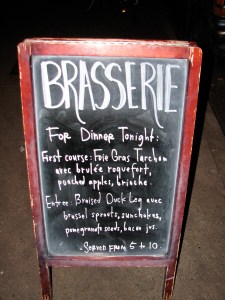 BRASSERIE
For Dinner Tonight:
First course: Foie Gras Torchon
avec brulée roquefort,
poached apples, brioche.
Entree: Braised Duck Leg avec
brussel sprouts, sunchokes,
pomegranate seeds, bacon jus.
- Served from 5 to 10 -